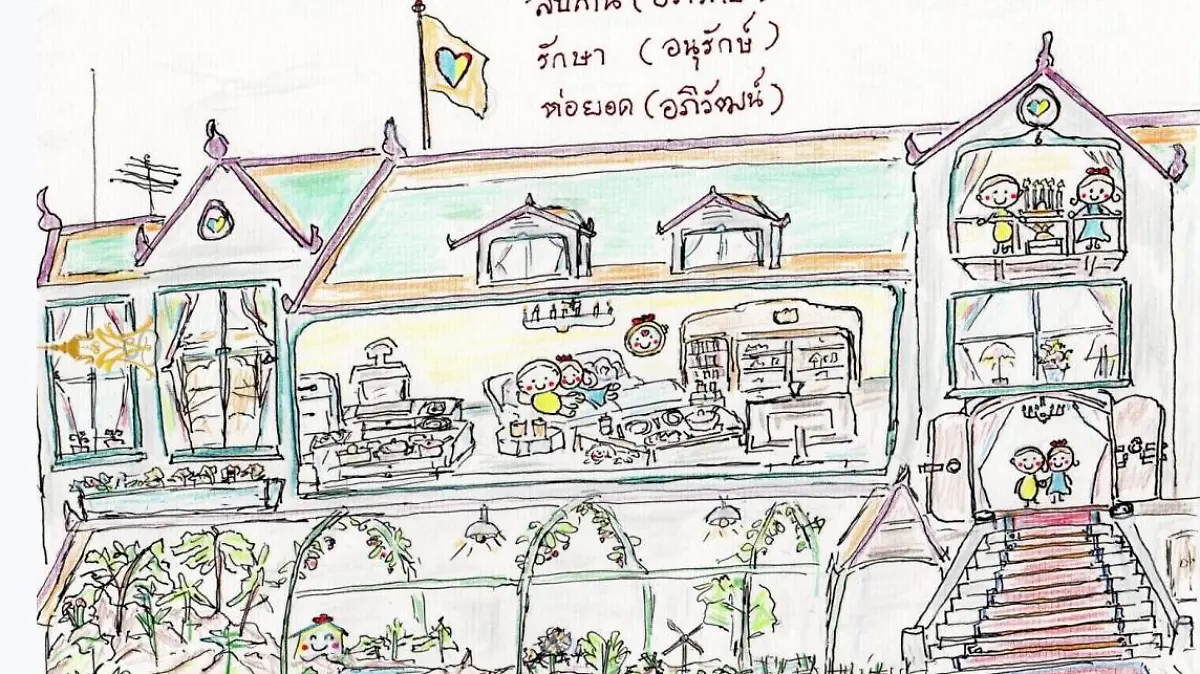 รักษา (อนุรักษ์)
ต่อยอด (อภิวัฒน์)